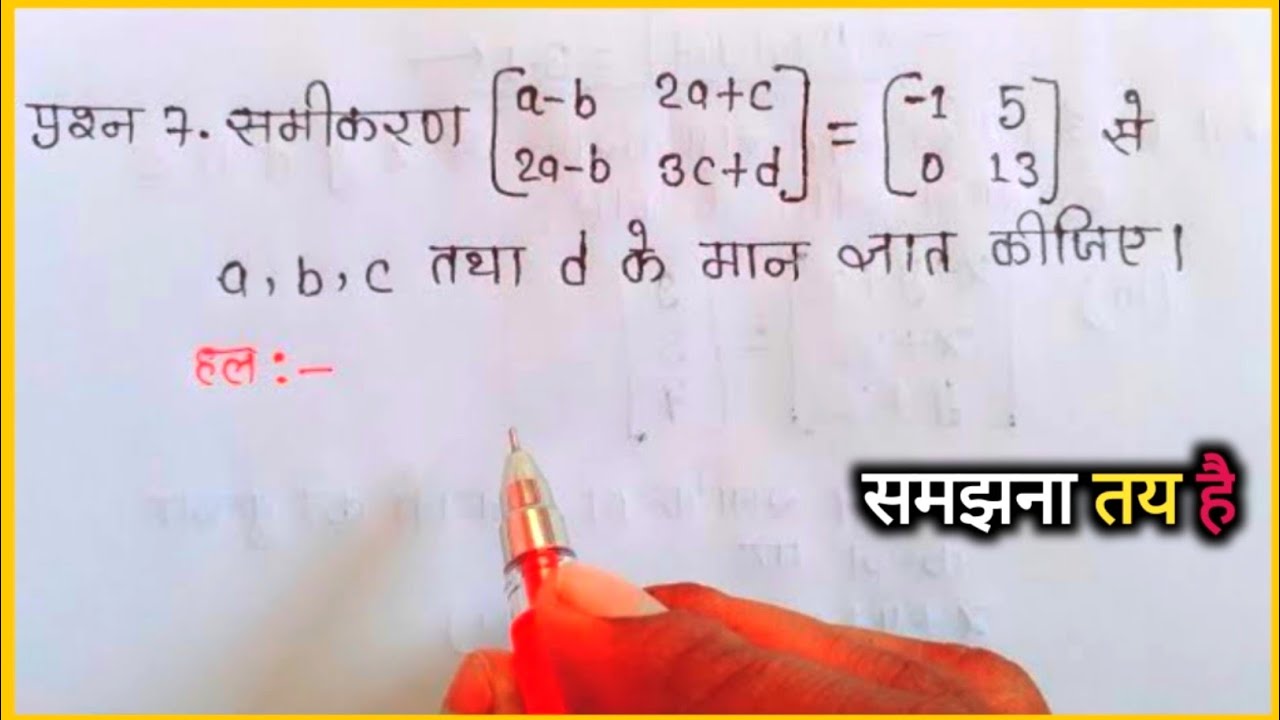 प्रश्न 7. समीकरण [a-b 2a+c] = [-1 5] से
[2a-b 3c+d] [0 13]
a, b, c तथा d के मान ज्ञात कीजिए।
हल :-
समझना तय है